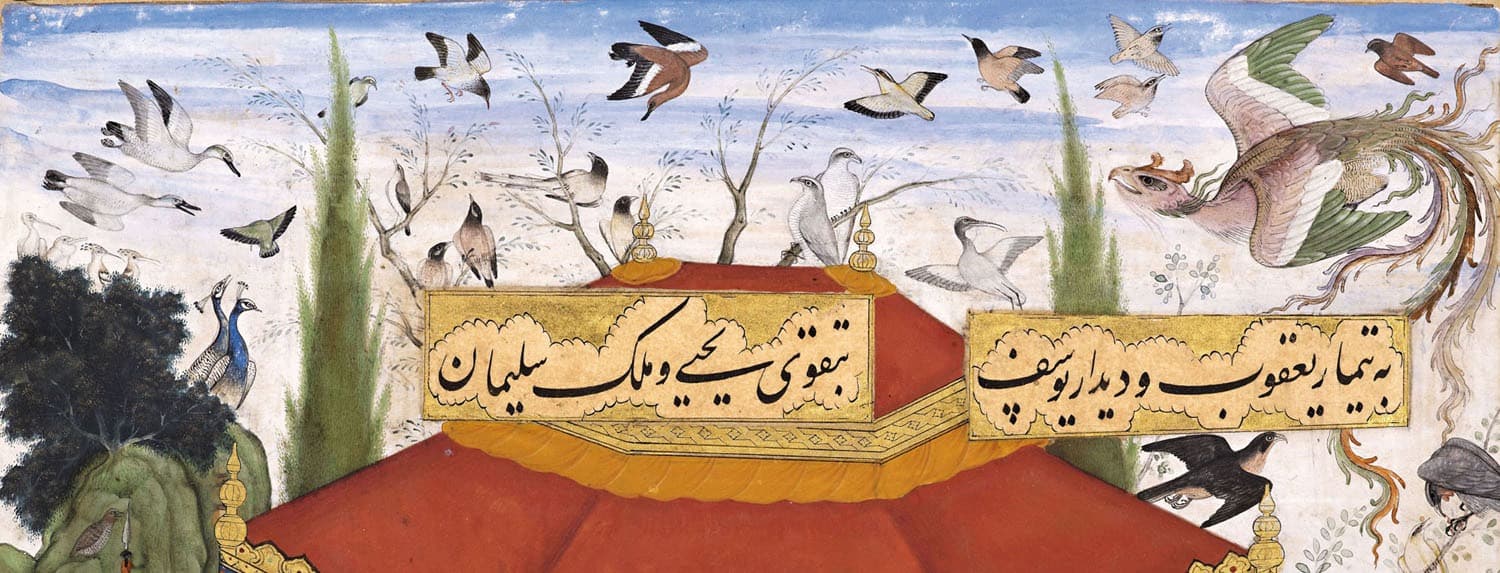 به تیمار یعقوب و دیدار یوسف
بتقوی یحیی و ملک سلیمان